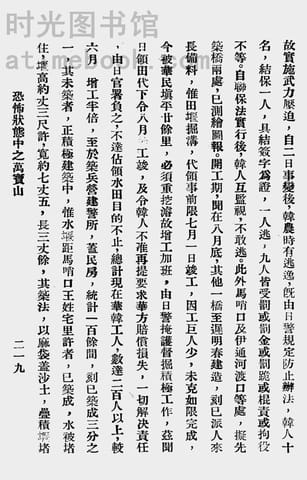 时光图书馆
atmebook.com
故實施武力壓迫，自二日事變後，韓農時有逃逸，旣由日警規定防止辦法，韓人十
名，結保一人，具結簽字爲證，一人逃，九人皆受罰或罰金或罰跪或棍責或拘役
不等。自聯保法實行後，韓人互監視，不敢逃。此外馬哨口及伊通河渡口等處，擬先
築橋兩處，已測繪圖報。開工期，聞在八月底，其他一橋至遲明春建造，刻已派人來
長備料，惟田堰掘溝，代領事前限七月一日竣工，因工巨人少，未克如限完成，
今被華民塡平廿餘里，必須重挖濬故增工加班，由日警掩護督掘積極工作，茲聞
日領田代下令八月一工竣，及令韓人不准再提要求華方賠償損失，一切解決責任
，由日官署負之，不達佔領水田目的不止，總計現在華韓工人，數達二百人以上，較
六月　增工半倍，至於築兵營建警所，蓋民房，統計一百餘間，刻已築成三分之
一，其未築者，正積極建築中，惟水堰距馬哨口王姓宅里許者，已築成，水被堵
住，堰高約丈三尺許，寬約七丈五，長三丈餘，其築法，以麻袋蓋沙土，疊積堰堵
恐怖狀態中之萬寶山
二一九